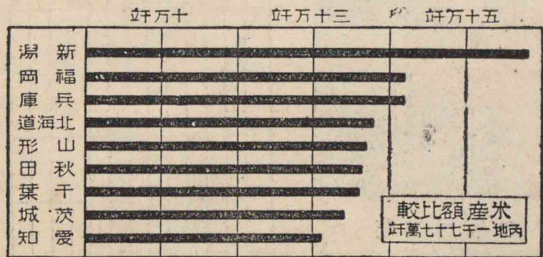 十万竏
三十万竏
五十万竏
新潟
福岡
兵庫
北海道
山形
秋田
千葉
茨城
愛知
米産額比較
内地一千七十七萬竏